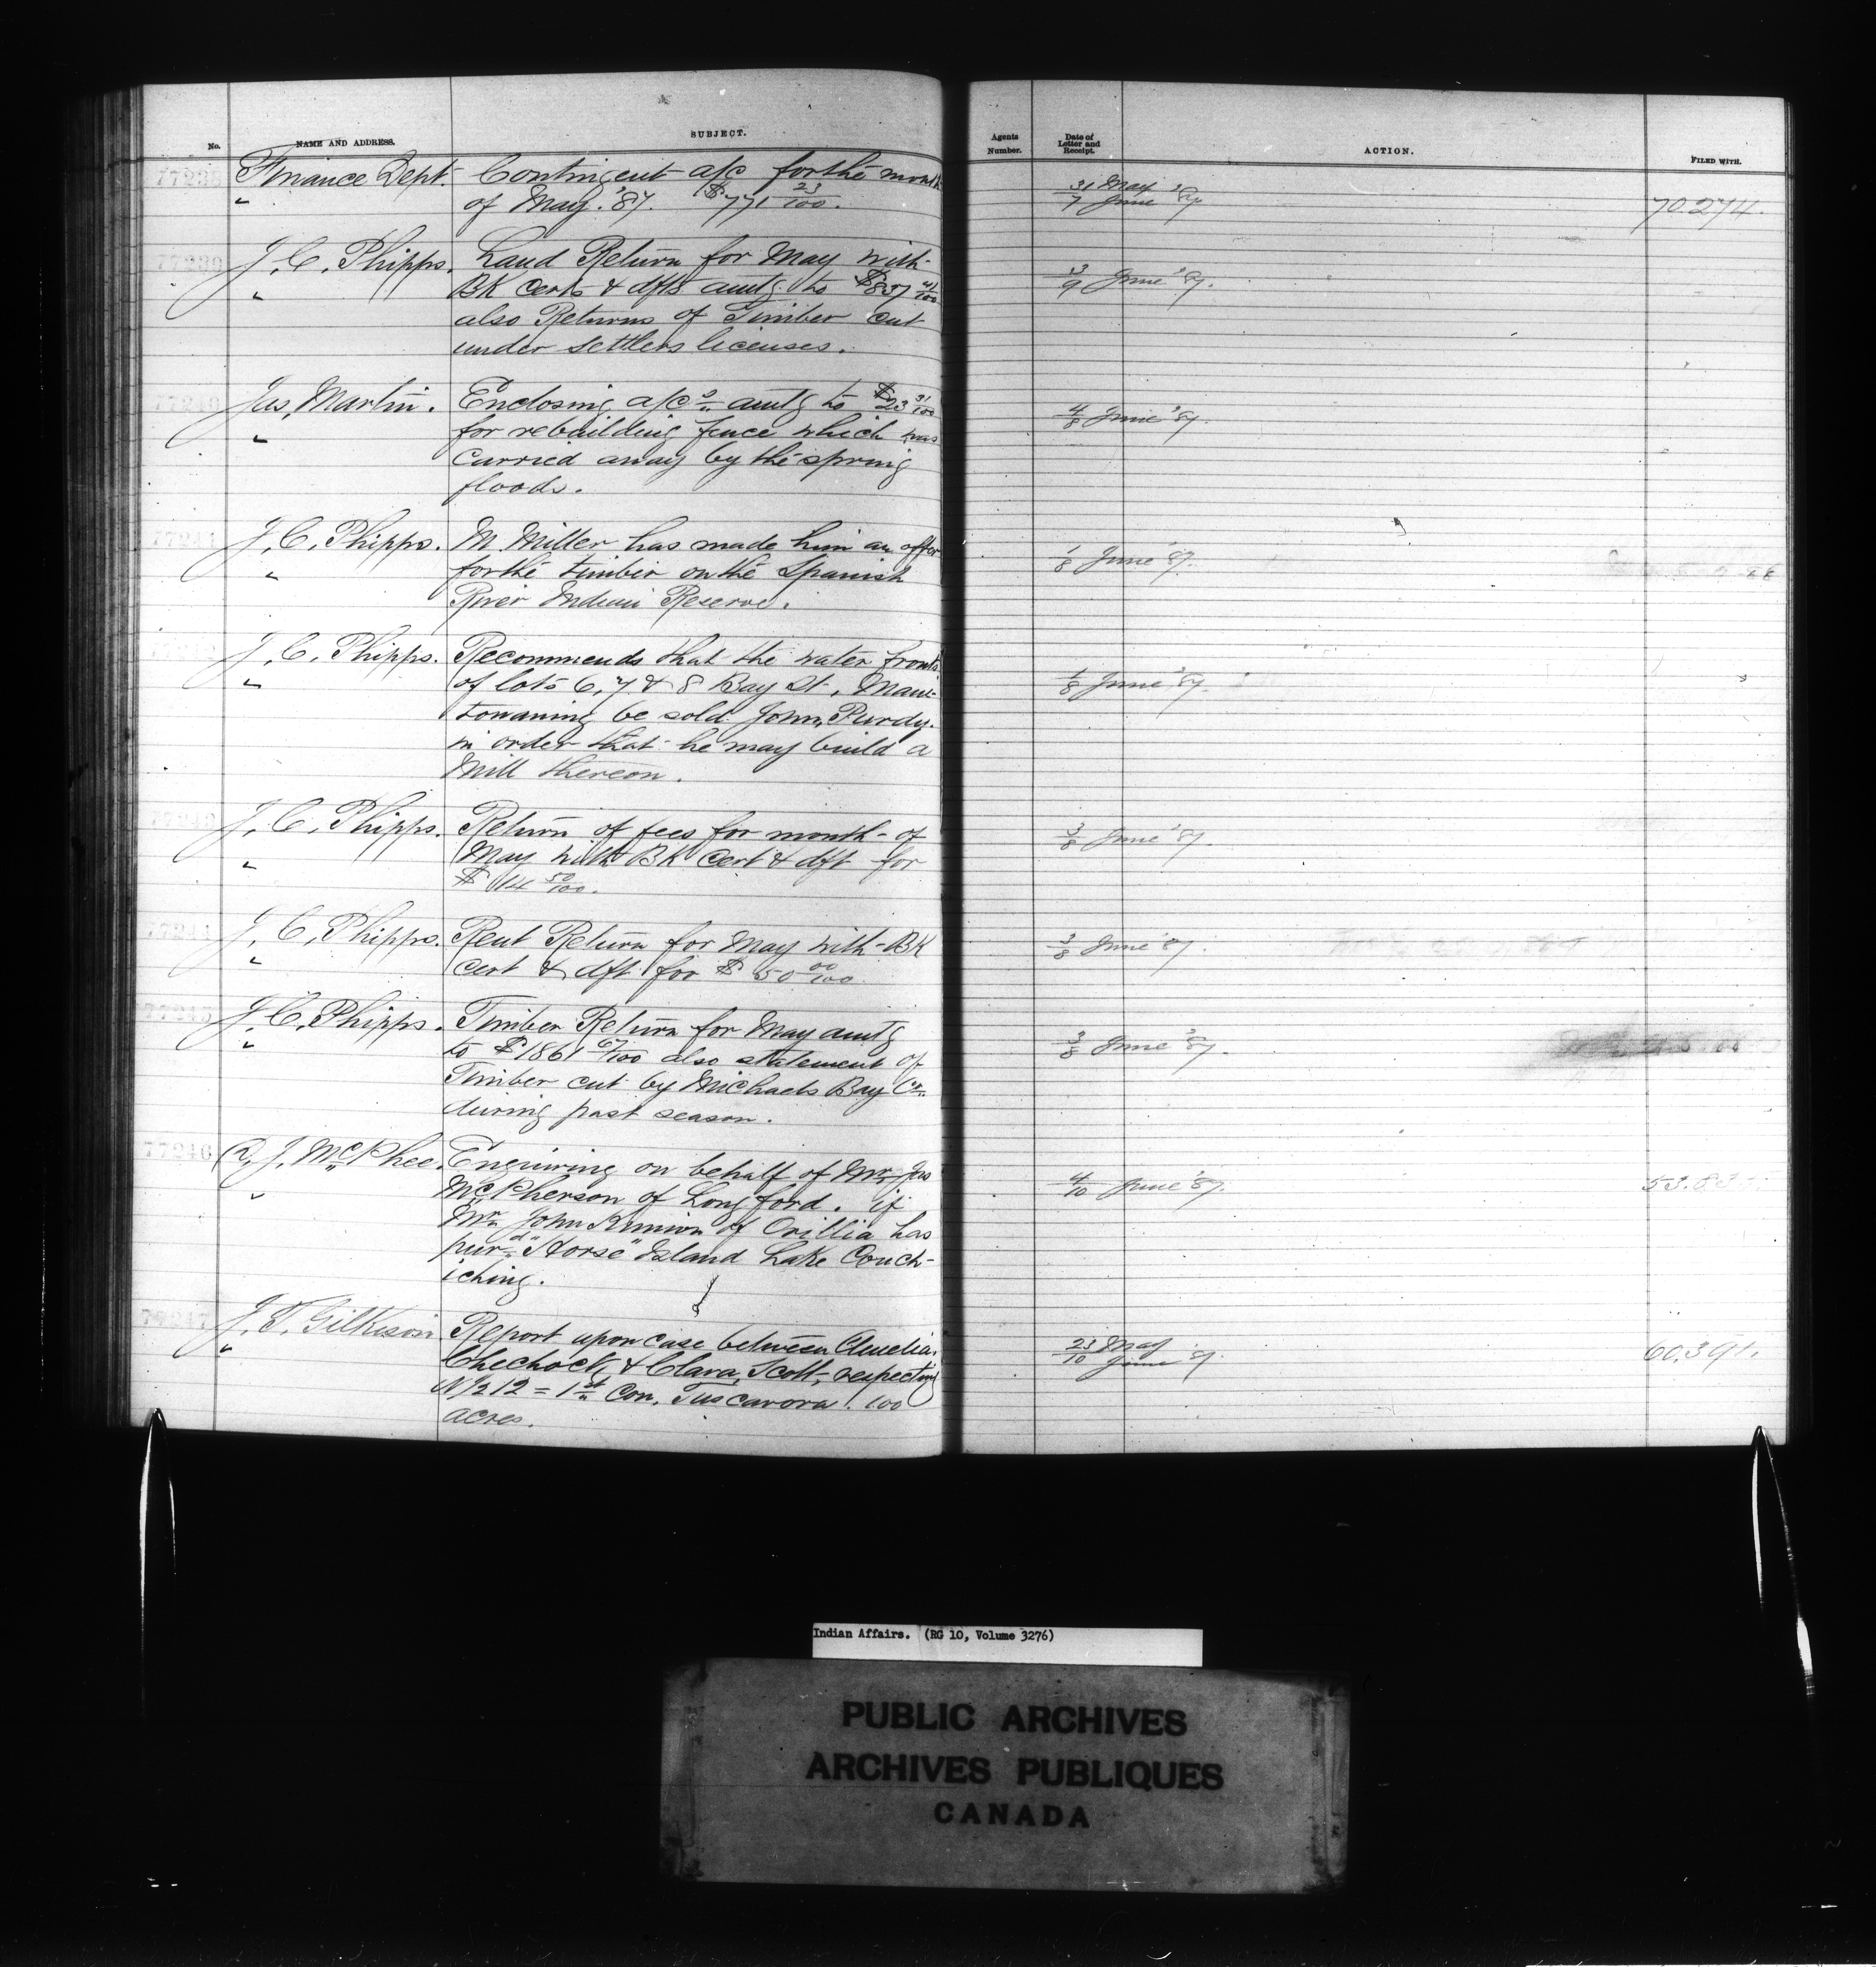 No.
NAME AND ADDRESS.
SUBJECT.
Agents Number.
Date of Letter and Receipt.
ACTION.
FILED WITH.
77238 Finance Dept. Contingent a/c for the month 31/7 May June '87
" of May '87. $771 23/100. 70.274.
77239 J. C. Phipps. Land Return for May with
" BK Certs & dfts amtg to $837 41/100 3/9 June '87.
also Returns of Timber cut
under settlers licenses.
77240 Jas. Martin. Enclosing a/cs amtg to $23 31/100 4/8 June '87.
" for rebuilding fence which was
carried away by the spring
floods.
77241 J. C. Phipps. M. Miller has made him an offer 1/8 June '87.
" for the timber on the Spanish
River Indian Reserve.
J. C. Phipps. Recommends that the water fronts
" of lots 6, 7 & 8 Bay St., Mani- 1/8 June '87.
towaning be sold John Purdy.
in order that he may build a
Mill thereon.
77243 J. C. Phipps. Return of fees for month of 3/8 June '87.
" May with BK Cert & dft for
$14 50/100.
77244 J. C. Phipps. Rent Return for May with BK 3/8 June '87.
" Cert & dft for $50 00/100
77245 J. C. Phipps. Timber Return for May amtg
" to $1861 67/100 also statement of 3/8 June '87.
Timber cut by Michaels Bay Co.
during past season.
77246 A. J. McPhee. Enquiring on behalf of Mr. Jas
" McPherson of Longford. if 4/10 June '87. 53.83
Mr. John of Orillia has
purd "Horse" Island Lake Couch-
iching.
77247 J. T. Gilkison Report upon case between Amelia 23/10 May June '87. 60,391.
" Chechock & Clara Scott, respecting
N 1/2 12 = 1st Con. Tuscarora. 100
acres.
Indian Affairs. (RG 10, Volume 3276)
PUBLIC ARCHIVES
ARCHIVES PUBLIQUES
CANADA